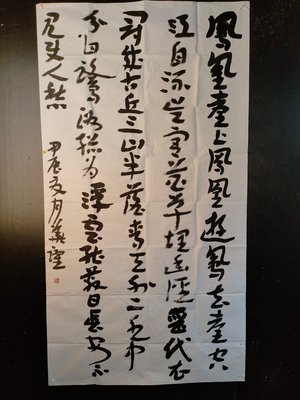 鳳凰臺上鳳凰遊鳳去臺空
江自流吳宮花草埋幽徑晉代衣
冠成古丘三山半落青天外二水中
分白鷺洲總為浮雲能蔽日長安不
見使人愁
甲辰夏月